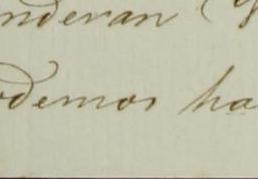 nderan
odemos ha